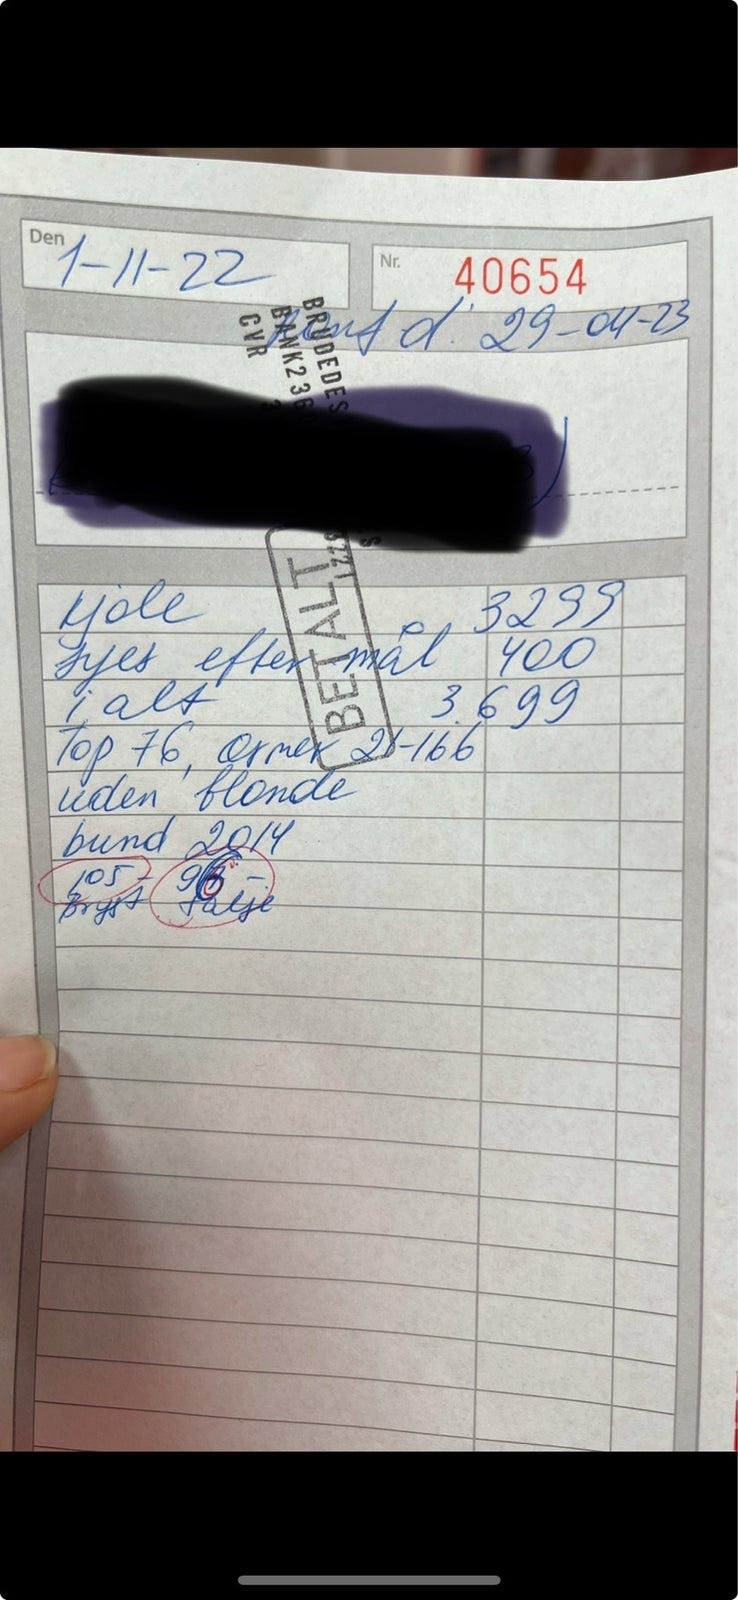 Den 1-11-22
Nr. 40654
d. 29-04-23
BRUDEDES
BANK236
CVR 3
BETALT
kjole 3299
syes efter mål 400
i alt 3.699
Top 76, ærmer 21-166
uden blonde
bund 2014
105-
Bryst Talje